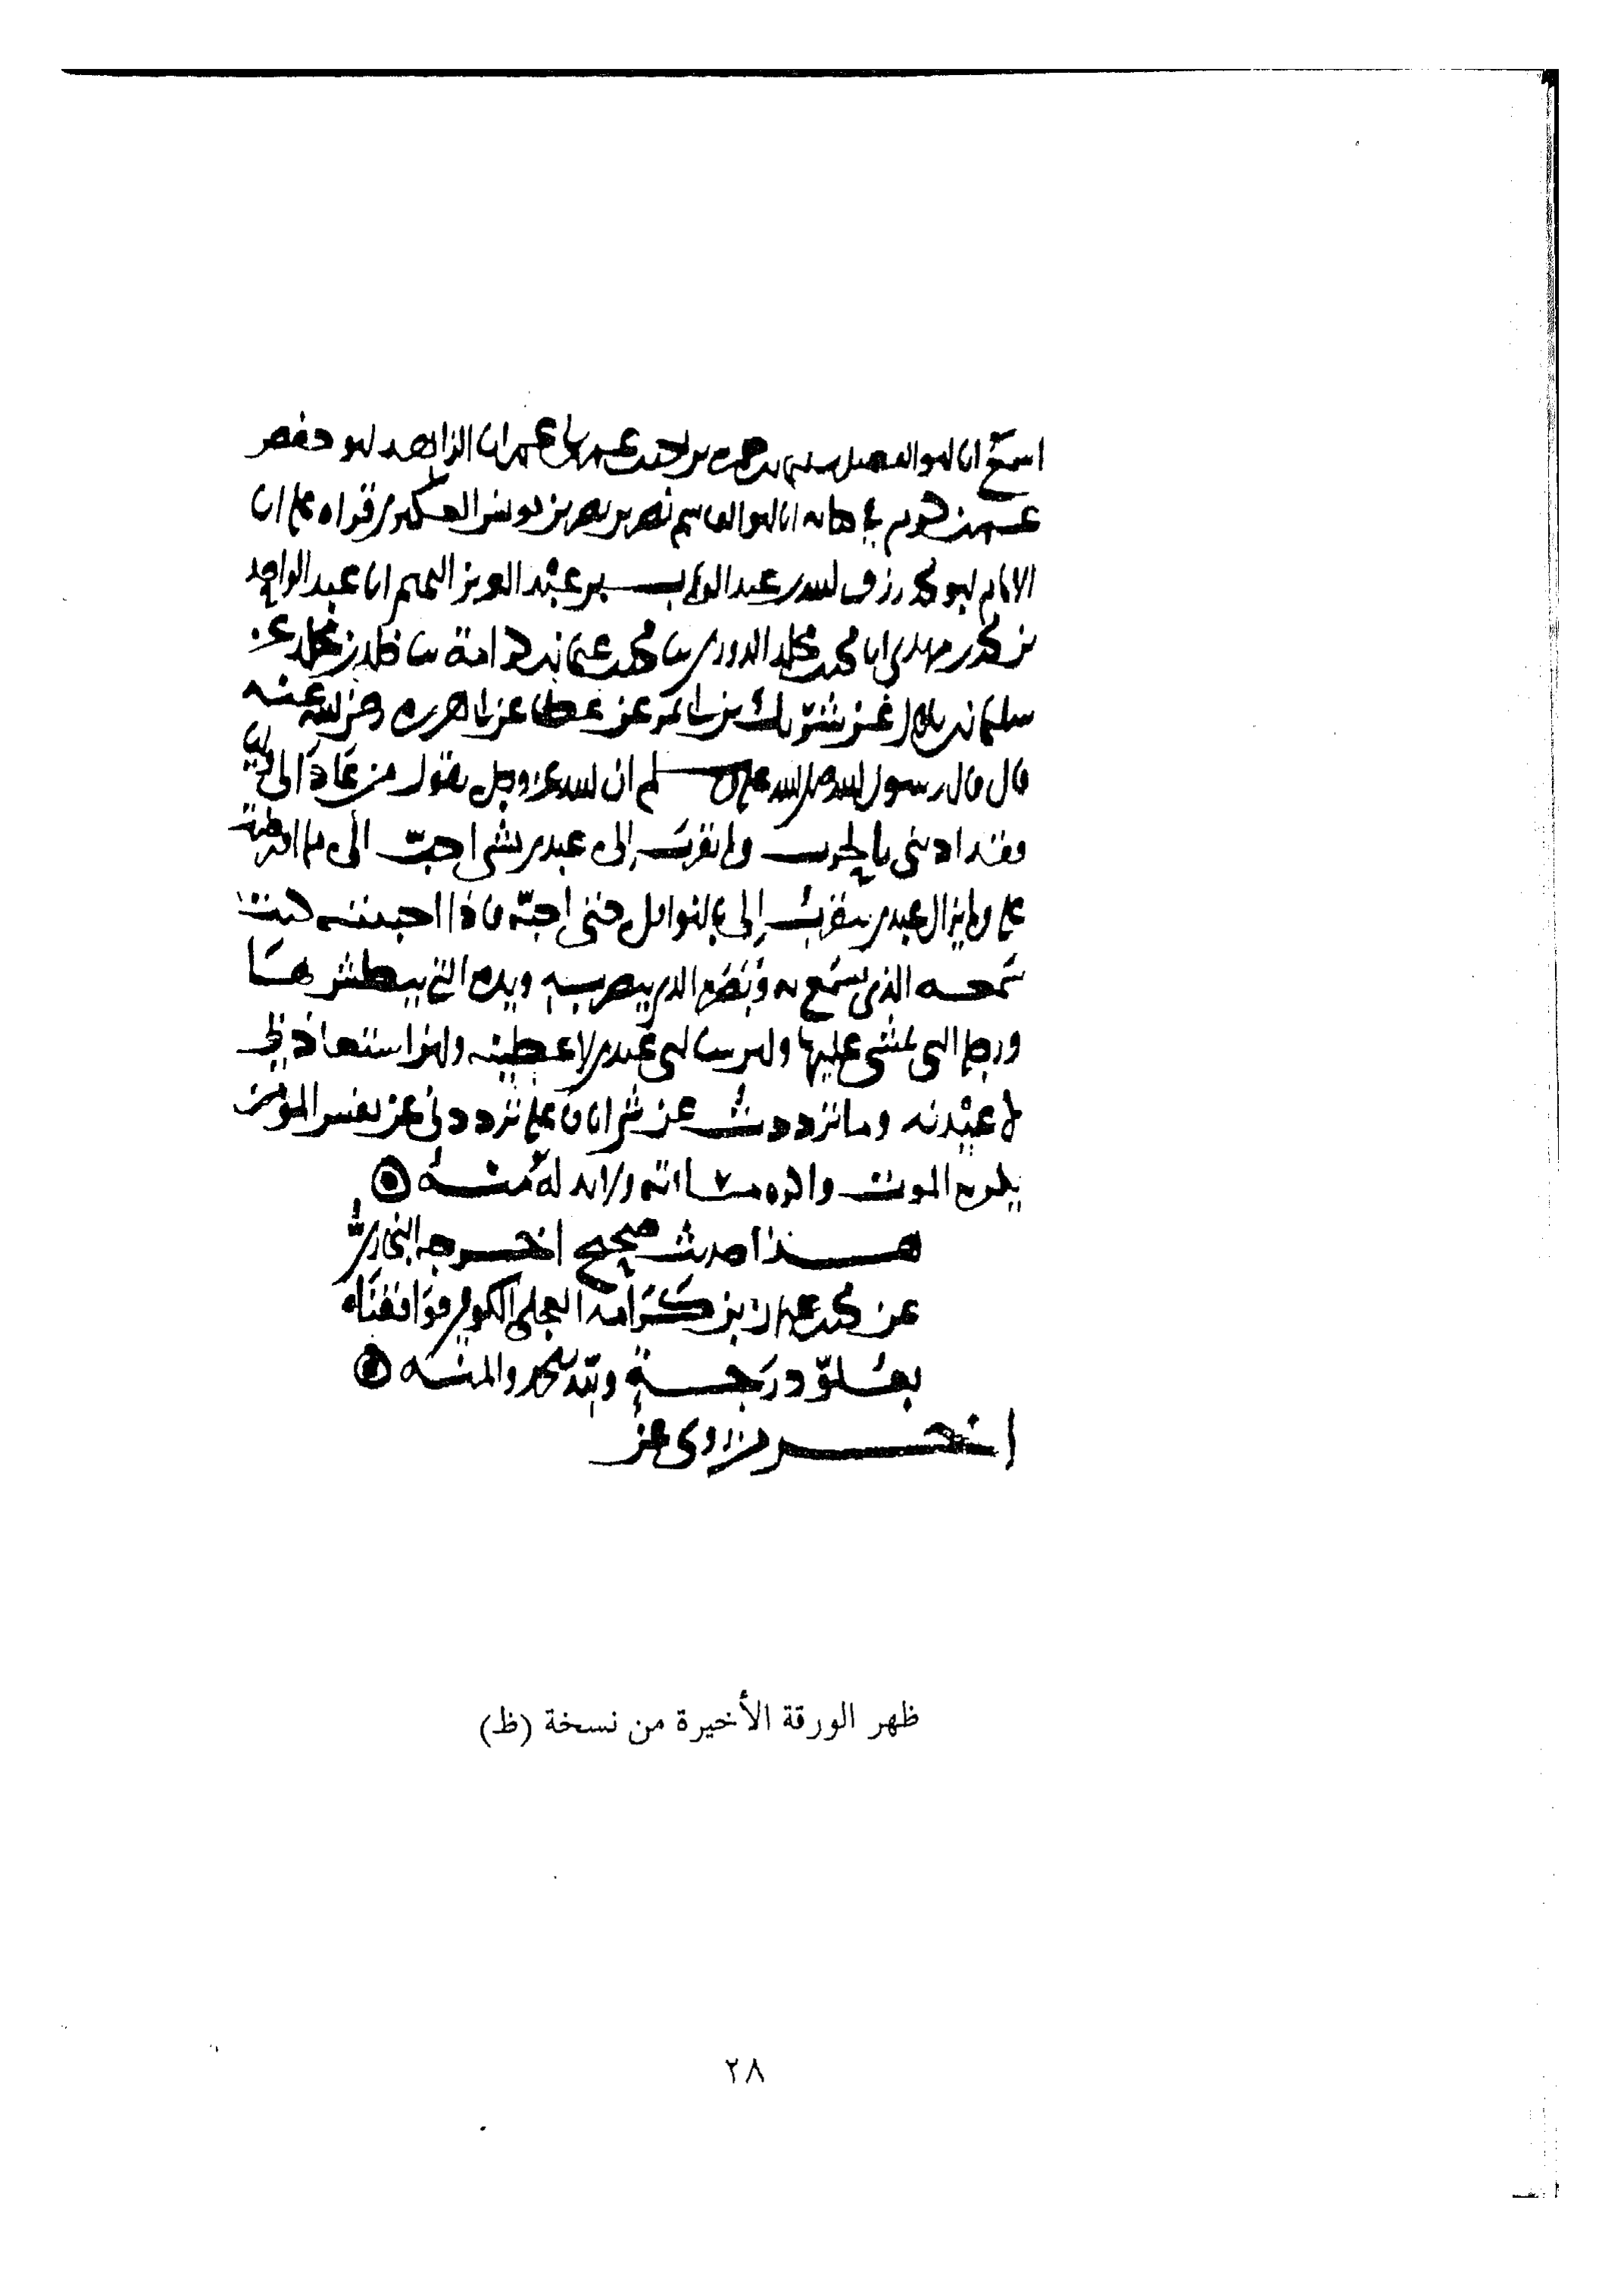 اسمع انا ابو الفضل بن عمران الزاهد ابو حفص
انا ابو القاسم نصر بن نصر بن يونس العكبري قراه عليه انا
الامام ابو محمد رزق الله بن عبد الوهاب بن عبد العزيز التميمي انا عبد الواحد
بن محمد بن مهدي انا محمد بن مخلد الدوري ثنا محمد بن عثمان بن كرامة ثنا خالد بن مخلد عن
سليمان بن بلال عن شريك بن ابي نمر عن عطا عن ابي هريره رضي الله عنه
قال قال رسول الله صلى الله عليه وسلم ان الله عز وجل يقول من عادا لي وليا
فقد اذنني بالحرب وما تقرب إلي عبدي بشي احب الي مما افترضته
عليه وما يزال عبدي يتقرب إلي بالنوافل حتى احبه فاذا احببته كنت
سمعه الذي يسمع به وبصره الذي يبصر به ويده التي يبطش بها
ورجله التي يمشي عليها ولئن سالني عبدي لاعطينه ولئن استعاذ بي
لاعيذنه وما ترددت عن شي انا فاعله ترددي عن نفس المؤمن
يكره الموت واكره مساءته ولا بد له منه
هذا حديث صحيح اخرجه البخاري
عن محمد بن عثمان بن كرامه العجلي الكوفي فوافقناه
بعلو درجة ولله الحمد والمنه
اخر من روى عن
ظهر الورقة الأخيرة من نسخة (ظ)
٢٨